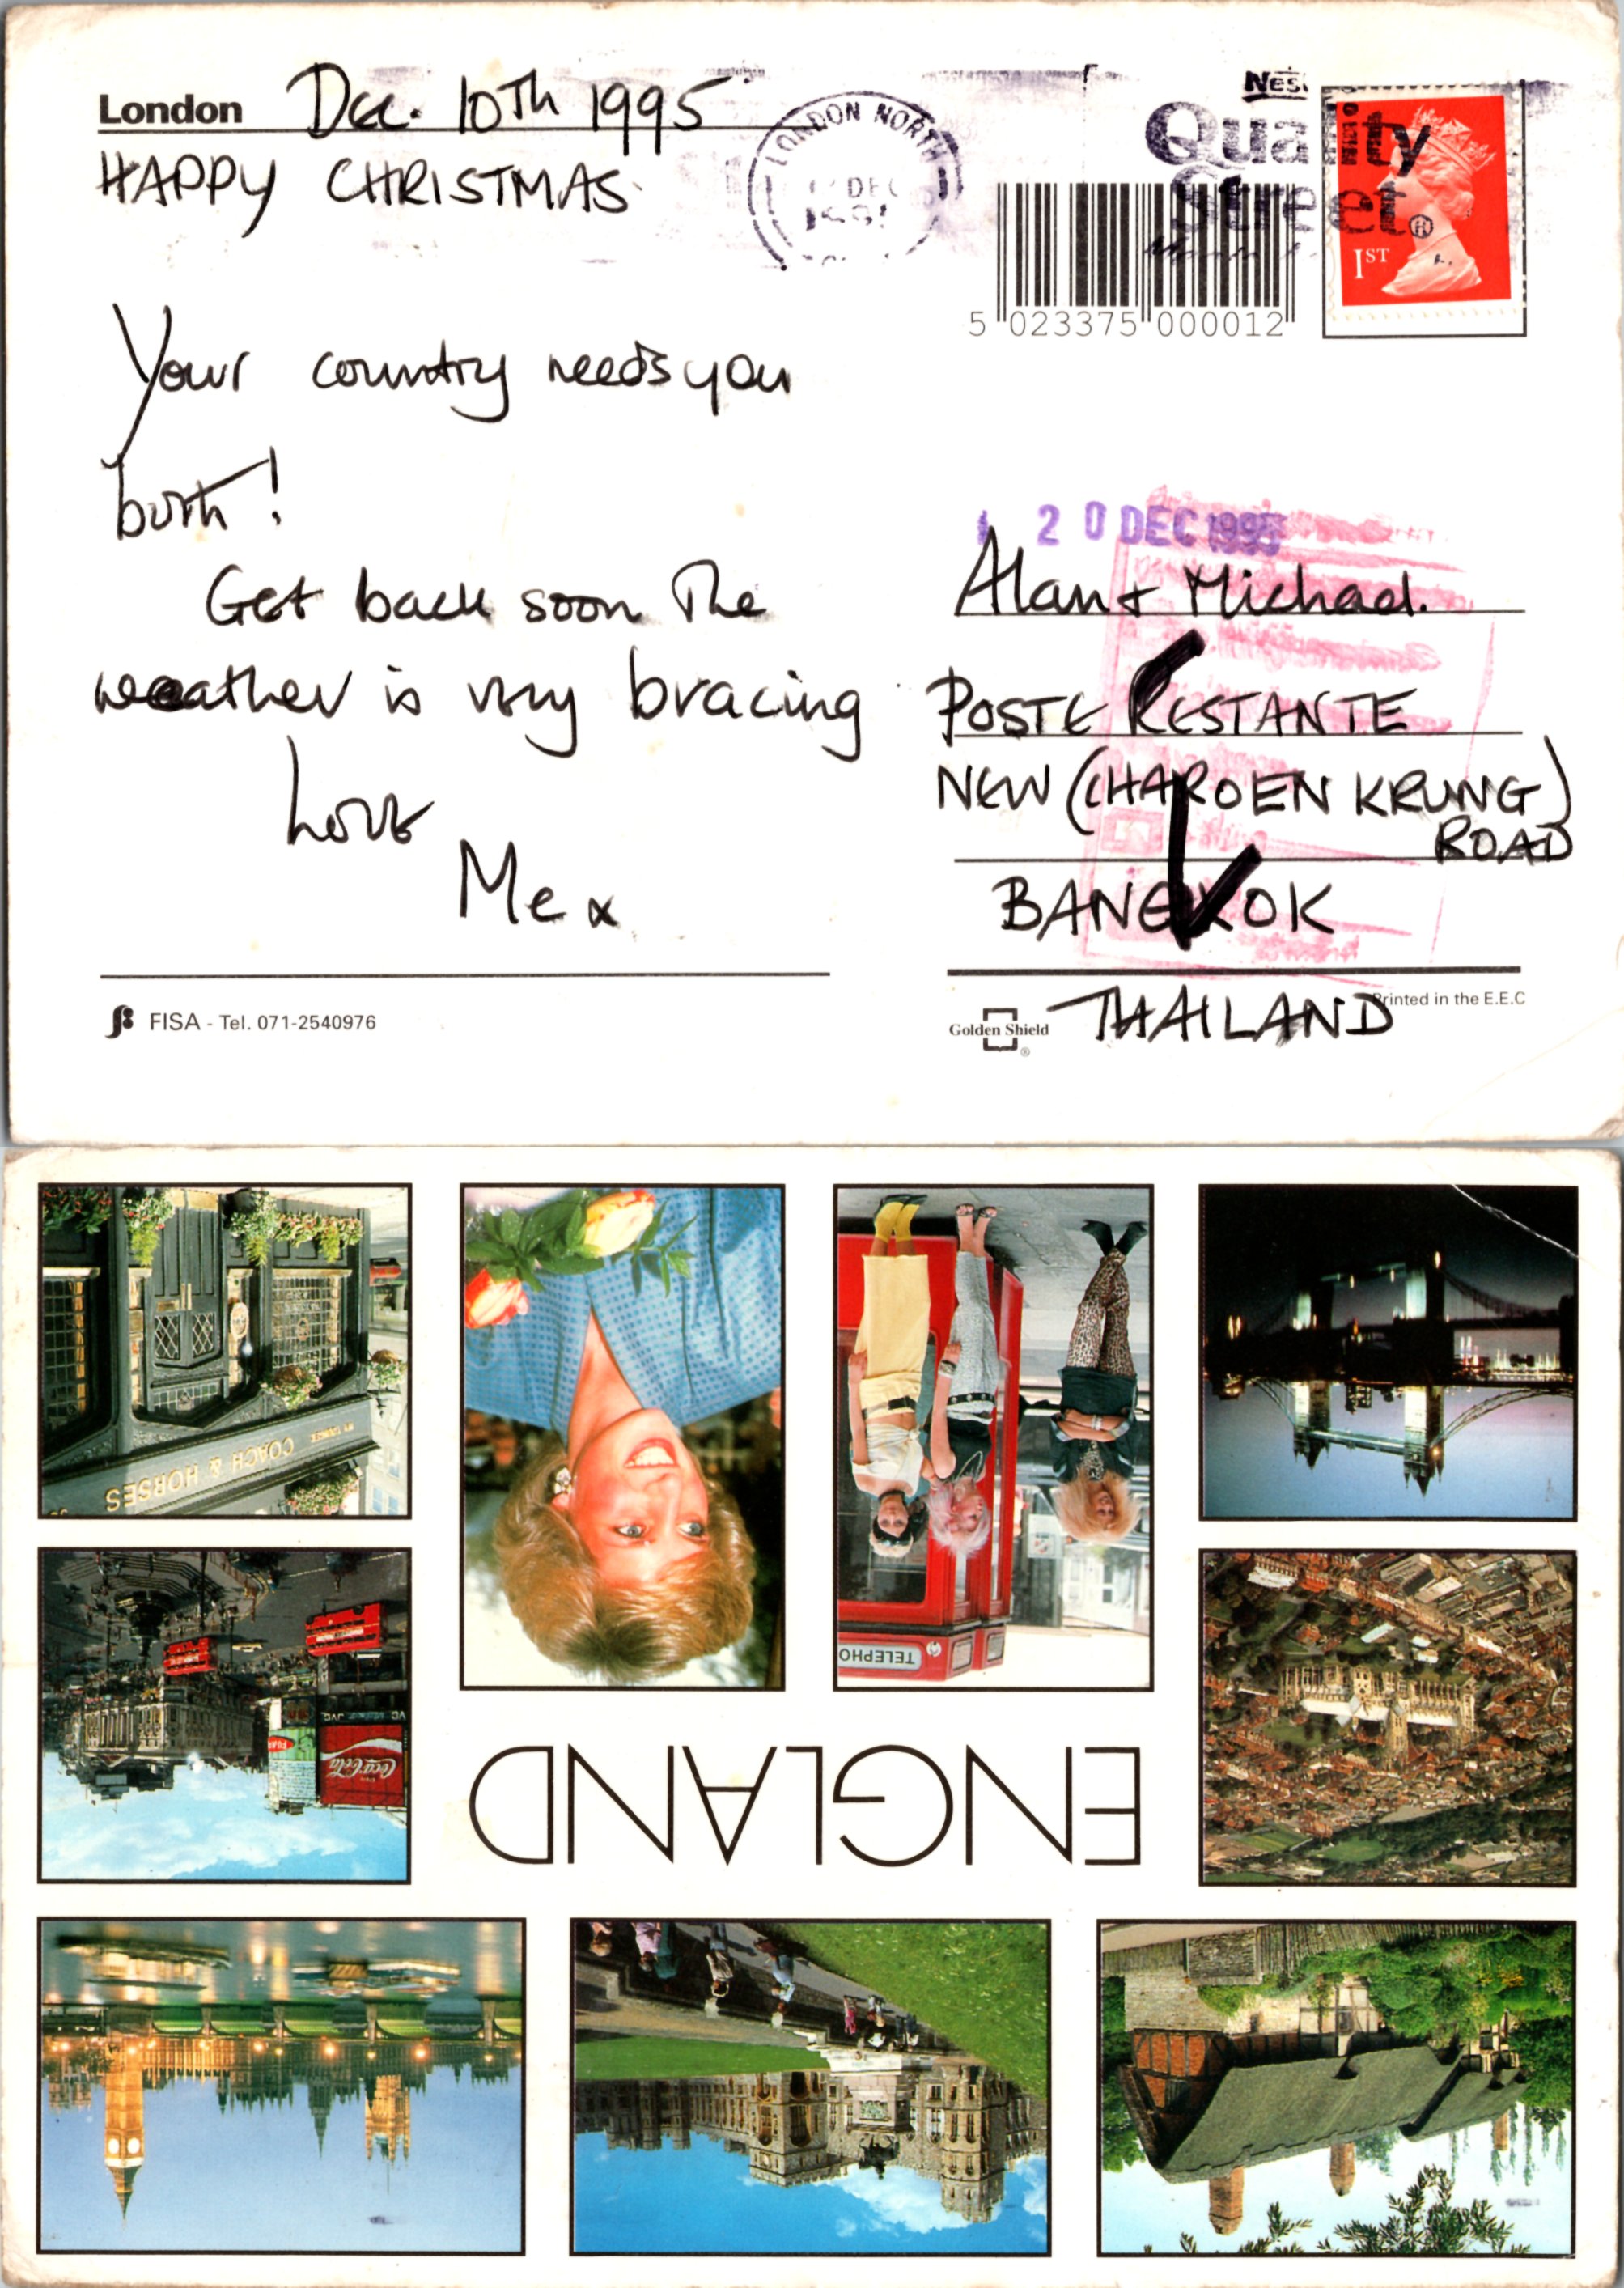 London Dec. 10Th 1995
HAPPY CHRISTMAS
Your country needs you
both!
Get back soon The
weather is very bracing
Love
Me x
FISA - Tel. 071-2540976
LONDON NORTH
DEC
Nes
Quality
Street®
1ST
5 023375 000012
20 DEC 1995
Alan + Michael.
POSTE RESTANTE
NEW (CHAROEN KRUNG)
ROAD
BANGKOK
THAILAND
Golden Shield
®
Printed in the E.E.C
ENGLAND
COACH & HORSES
TELEPHO
Coca-Cola
JVC